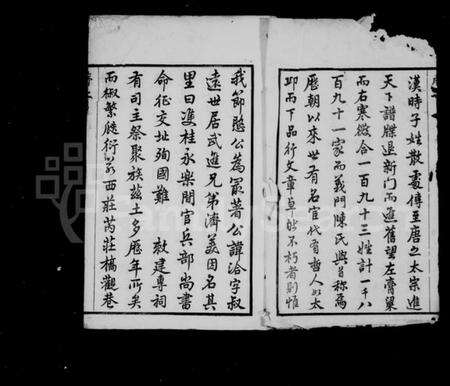 漢時子姓散處傳至唐之太宗進
天下譜牒退新門而進舊望左膏粱
而右寒微合一百九十三姓計一千八
百九十一家而義門陳氏與吕称爲
歷朝以來世有名官代有哲人以太
邱而下品行文章卓然不朽者則惟
我節愍公爲最著公諱洽字叔
遠世居武進兄弟濟美因名其
里曰雙桂永樂間官兵部尚書
命征交址殉國難 敕建専祠
有司主祭聚族茲土多歷年所矣
而椒繁瓞衍若西莊芮莊橋觀巷